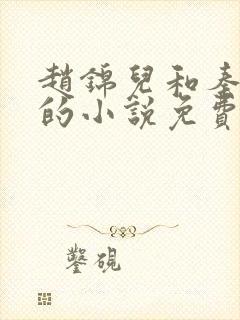 趙錦兒和秦
的小說免費
鑿硯